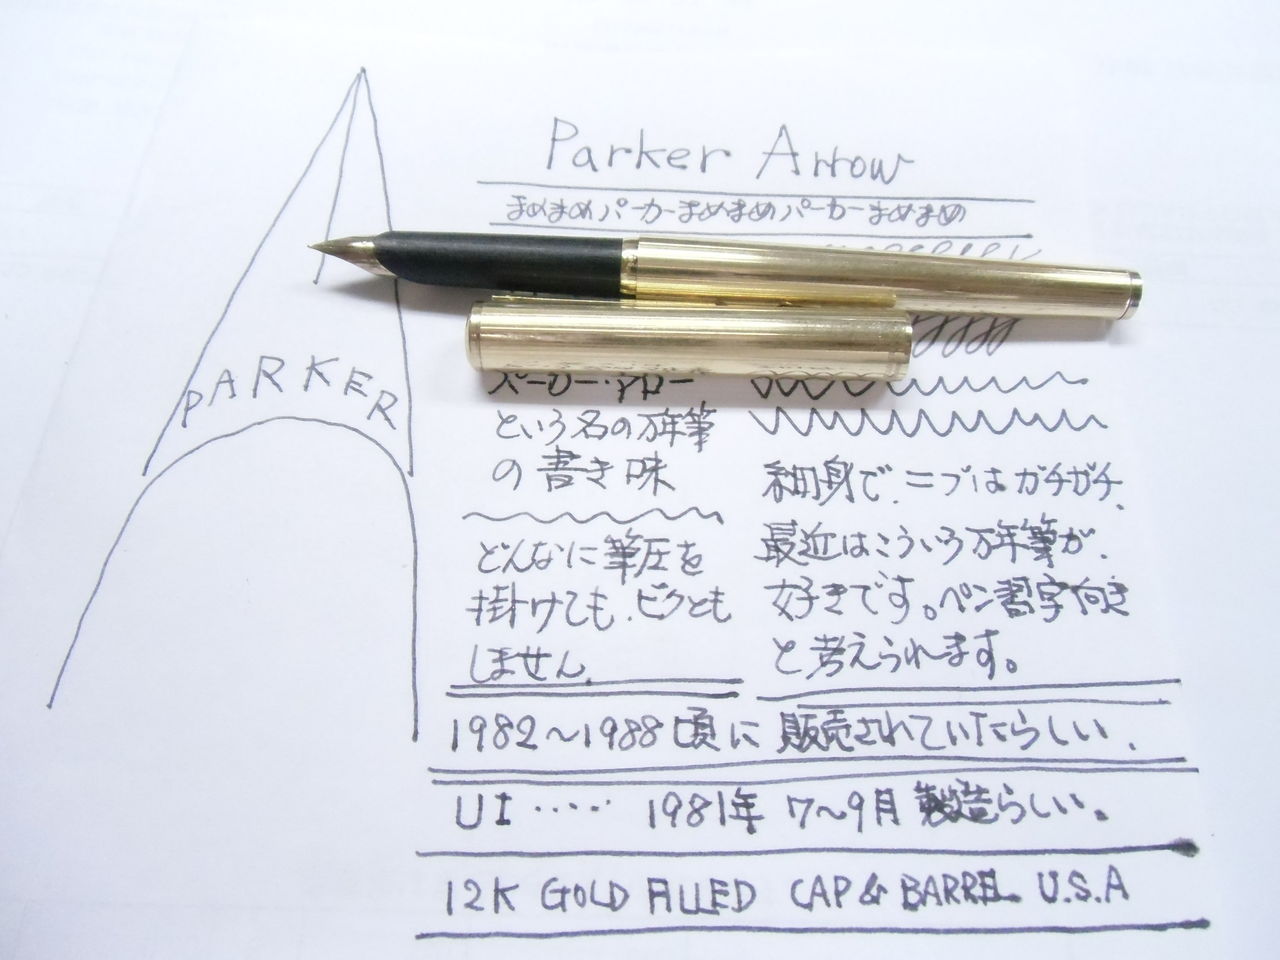 Parker Arrow
まめまめパーカーまめまめパーカーまめまめ
PARKER
パーカー・アロー
という名の万年筆
の書き味
どんなに筆圧を
掛けても、ビクとも
しません。
細身で、ニブはガチガチ、
最近はこういう万年筆が、
好きです。ペン習字向き
と考えられます。
1982〜1988頃に販売されていたらしい、
UI ・・・・・ 1981年 7〜9月 製造らしい。
12K GOLD FILLED CAP & BARREL U.S.A